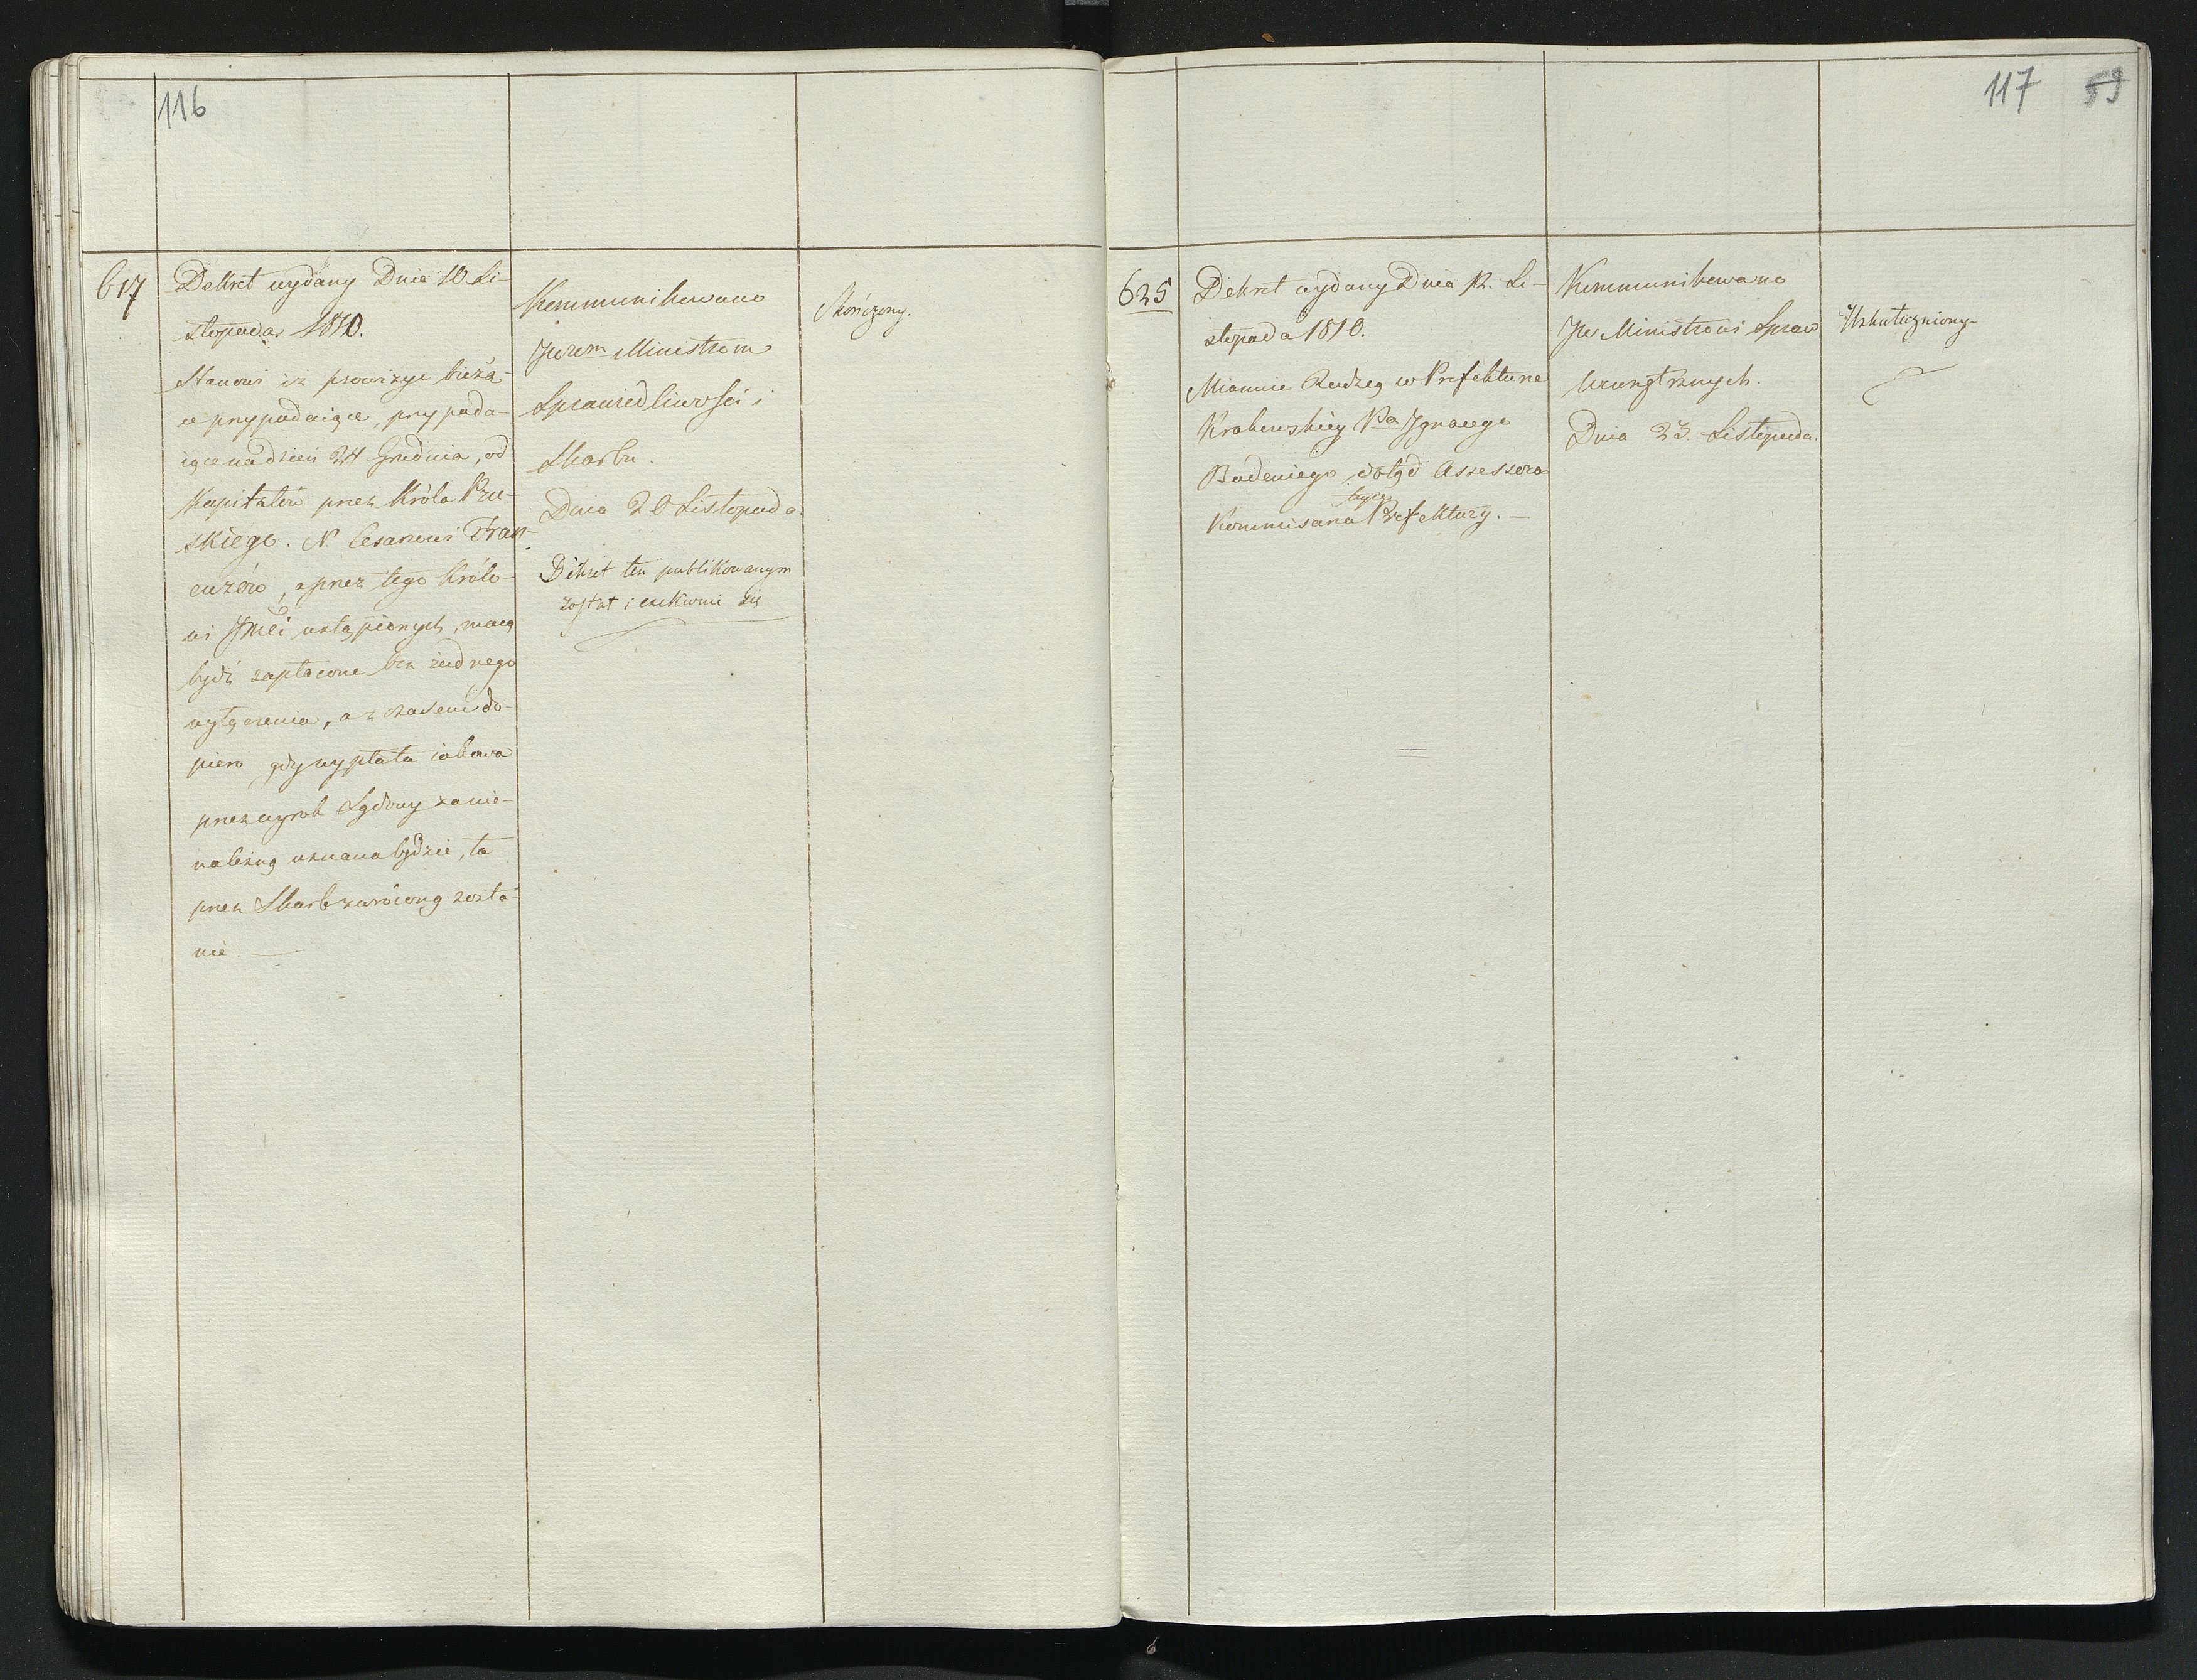 116
617
Dekret wydany Dnia 10 Li-
stopada 1810.
Stanowi iż prowizye bieżą-
ce przypadaiące, przypada-
iące na dzień 24 Grudnia, od
Kapitałów przez Króla Pru-
skiego. N. Cesarzowi Fran-
cuzów, a przez tego Królo-
wi Jmci ustąpionych, maią
bydź zapłacone bez żadnego
wyłączenia, a z czasem do-
piero gdy wypłata iakowa
przez wyrok Sądowy za nie-
należną uznana będzie, ta
przez Skarb zwróconą zosta-
nie. —
Kommunikowano
JWrom Ministrom
Sprawiedliwości i
Skarbu.
Dnia 20 Listopada.
Dekret ten publikowanym
został i exekwuie się
Skończony.
117 59
625
Dekret wydany Dnia 12. Li-
stopada 1810.
Mianuie Radzcą w Prefekturze
Krakowskiey Pa Ignacego
Badeniego, dotąd Assessora
Kommisarza teyże Prefektury. —
Kommunikowano
JW Ministrowi Spraw
Wewnętrznych.
Dnia 23. Listopada.
Uskuteczniony